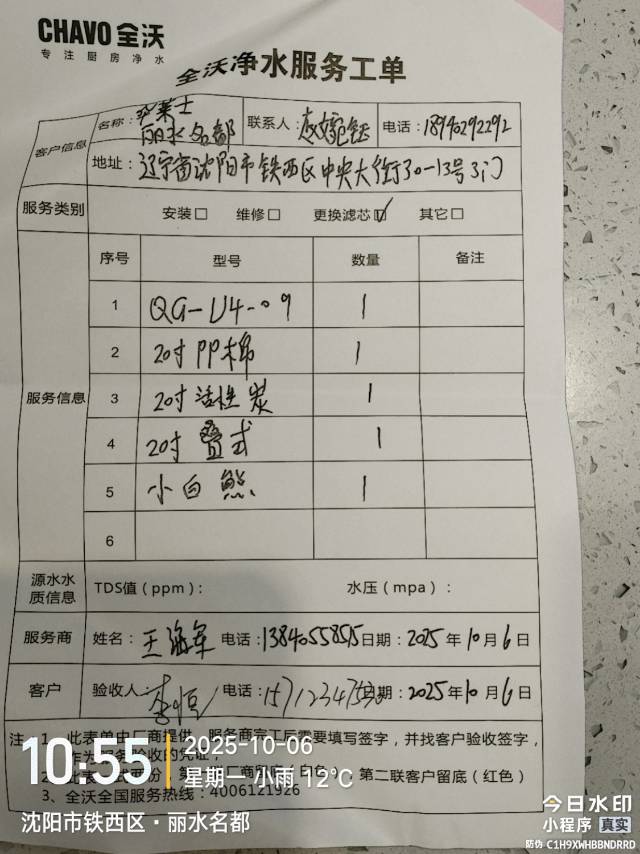 CHAVO 全沃
专注厨房净水
全沃净水服务工单
客户信息
名称：
丽水名都
联系人：
电话：18940292292
地址：辽宁省沈阳市铁西区中央大街30-13号3门
服务类别 安装□ 维修□ 更换滤芯☑ 其它□
服务信息
序号 型号 数量 备注
1 QG-U4-09 1
2 20寸PP棉 1
3 20寸活性炭 1
4 20寸叠式 1
5 小白熊 1
6
源水水质信息 TDS值（ppm）： 水压（mpa）：
服务商 姓名：王海军 电话：13840558515 日期：2025年10月6日
客户 验收人：李恒 电话：157123475 期：2025年10月6日
注：1、此表单由厂商提供，服务商完工后需要填写签字，并找客户验收签字，
验收的凭证；
第二联客户留底（红色）
3、全沃全国服务热线：4006121926
10:55
2025-10-06
星期一 小雨 12℃
沈阳市铁西区·丽水名都
今日水印
小程序 真实
防伪 C1H9XWHBBNDRRD